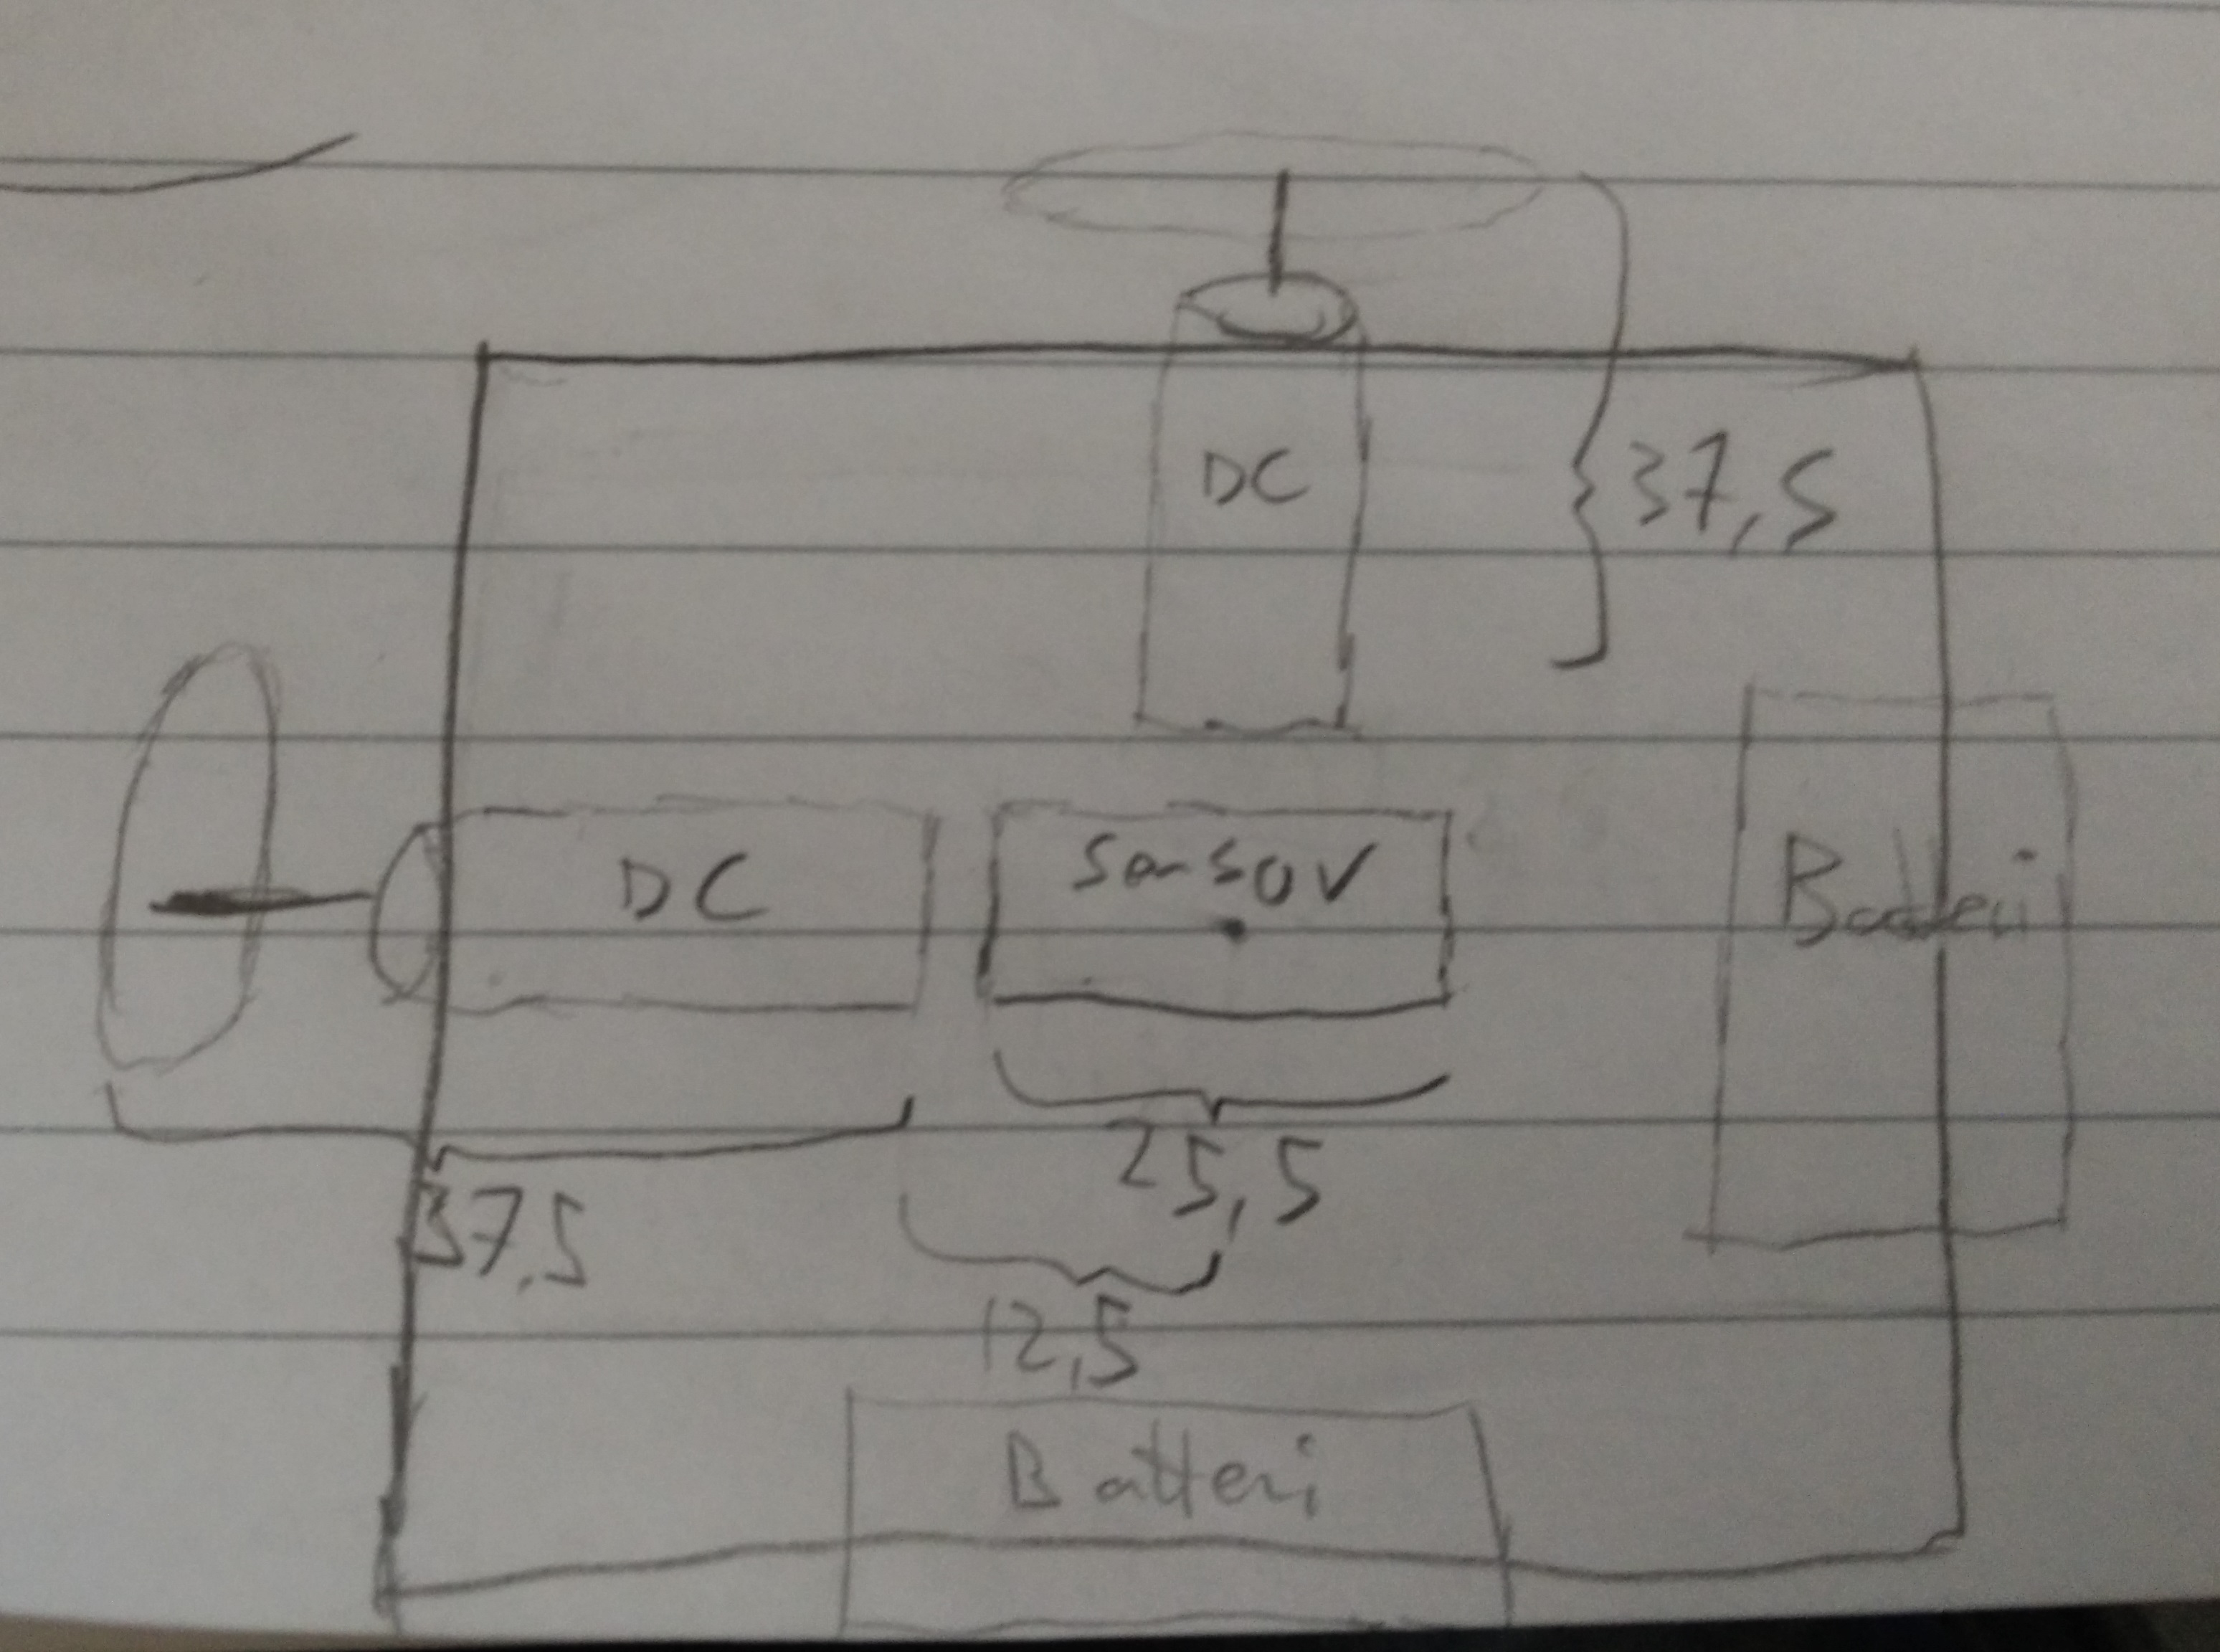 DC
37,5
DC
Sensov
Batteri
25,5
37,5
12,5
Batteri